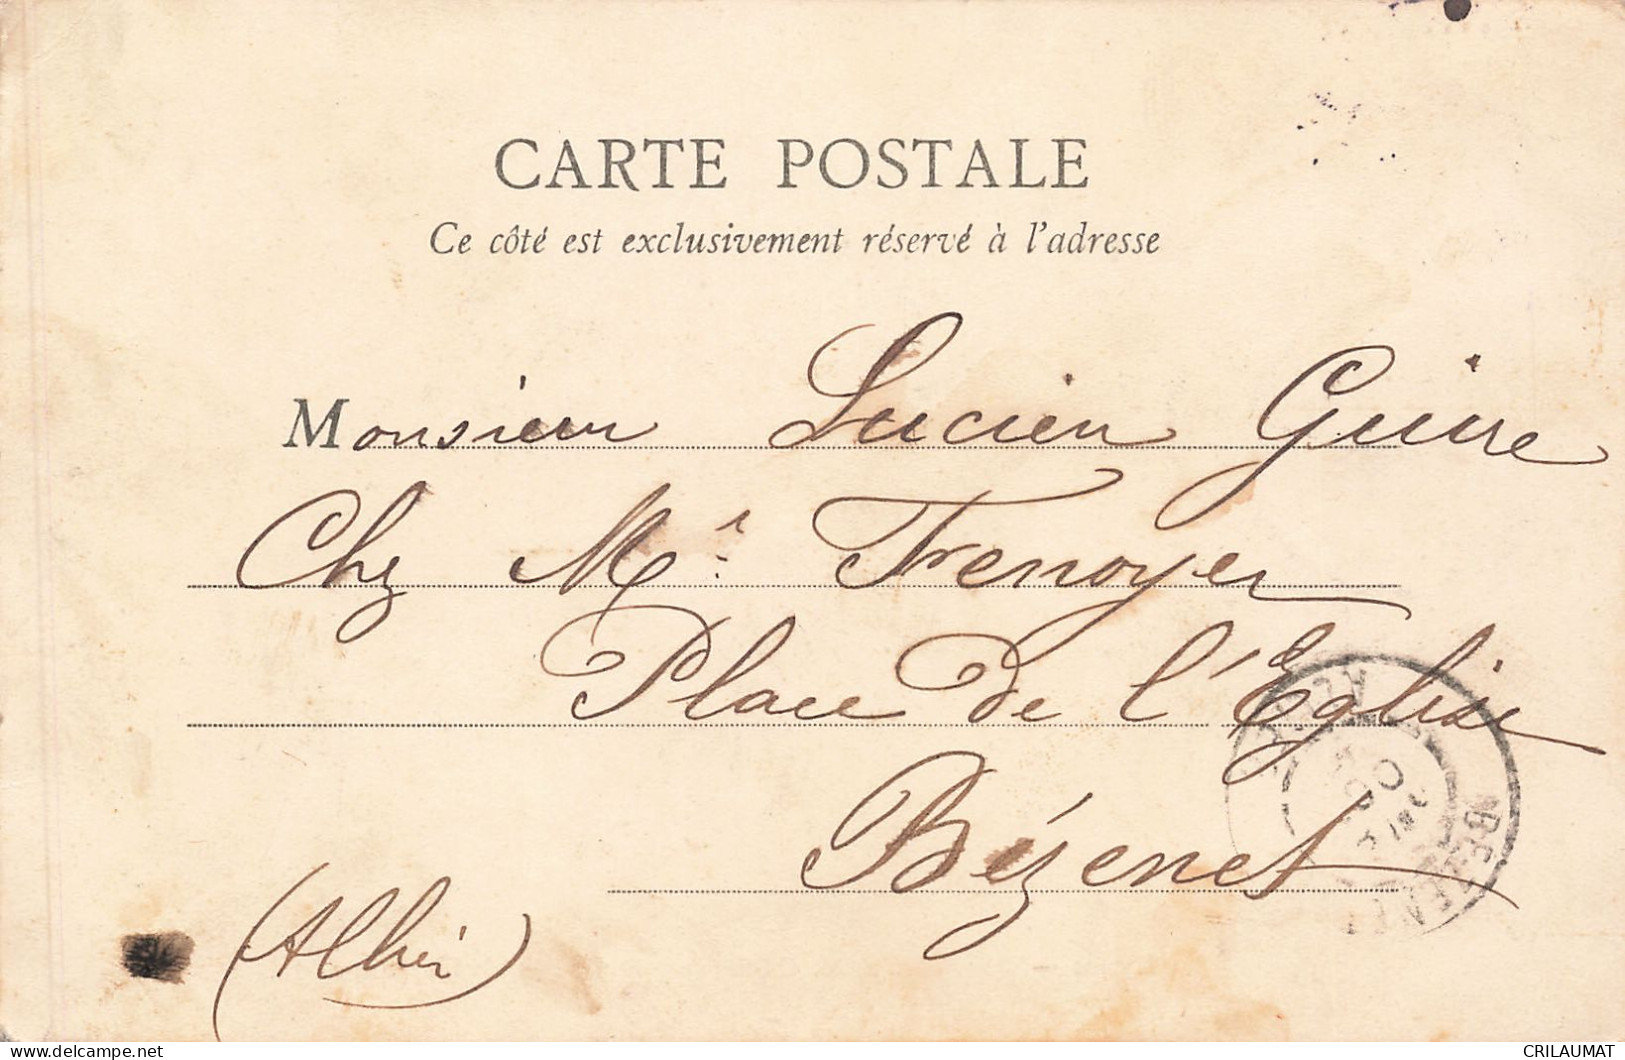 CARTE POSTALE
Ce côté est exclusivement réservé à l'adresse
Monsieur Lucien Guirre
Chez Mr Frenoyer
Place de l'Eglise
Bézenet
(Allier)
BEZENET
www.delcampe.net
CRILAUMAT